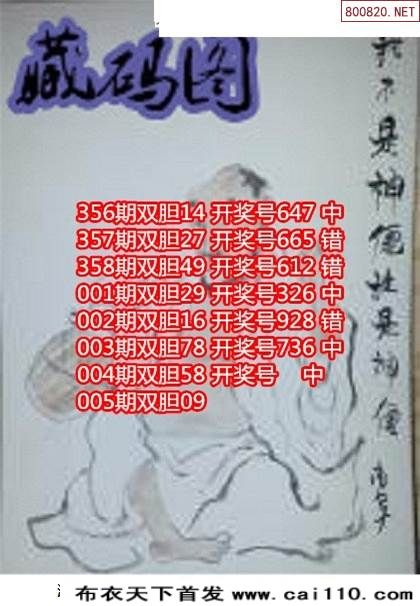 800820.NET
藏码图
我不是神僊杜是神僊
356期双胆14 开奖号647 中
357期双胆27 开奖号665 错
358期双胆49 开奖号612 错
001期双胆29 开奖号326 中
002期双胆16 开奖号928 错
003期双胆78 开奖号736 中
004期双胆58 开奖号 中
005期双胆09
布衣天下首发 www.cai110.com